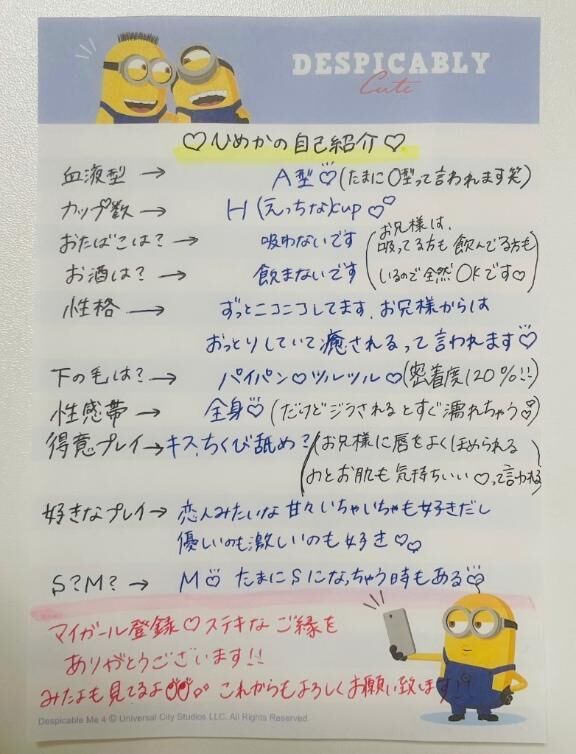 DESPICABLY
Cute
♡ひめかの自己紹介♡
血液型 → A型♡(たまにO型って言われます笑)
カップ数 → H(えっちなcup♡♡
おたばこは? → 吸わないです
お酒は? → 飲まないです
(お兄様は、
吸ってる方も飲んでる方も
いるので全然OKです♡)
性格 → ずっとニコニコしてます。お兄様からは
おっとりしていて癒されるって言われます♡
下の毛は? → パイパン♡ツルツル♡(密着度120%!!)
性感帯 → 全身♡(だけどジラされるとすぐ濡れちゃう♡)
得意プレイ → キス、ちくび舐め?(お兄様に唇をよくほめられる
のとお肌も気持ちいい♡って言われる)
好きなプレイ → 恋人みたいな甘々いちゃいちゃも好きだし
優しいのも激しいのも好き♡♡
S?M? → M♡ たまにSになっちゃう時もある♡
マイガール登録♡ステキなご縁を
ありがとうございます!!
みたよも見てるよ♡♡。これからもよろしくお願い致します!!
Despicable Me 4 © Universal City Studios LLC. All Rights Reserved.